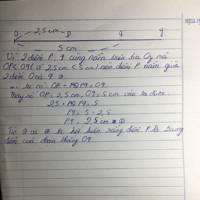 O 2,5cm P q y
5 cm
Vì 2 điểm P, q cùng nằm trên tia Oy mà
OP < Oq (2,5cm < 5cm) nên điểm P nằm giữa
2 điểm O và q.
ta có OP + Pq = Oq
Thay số OP = 2,5cm, Oq = 5cm vào ta được:
2,5 + Pq = 5
Pq = 5 - 2,5
Pq = 2,5cm ②
Từ ① và ② ta kết luận rằng điểm P là trung
điểm của đoạn thẳng Oq.